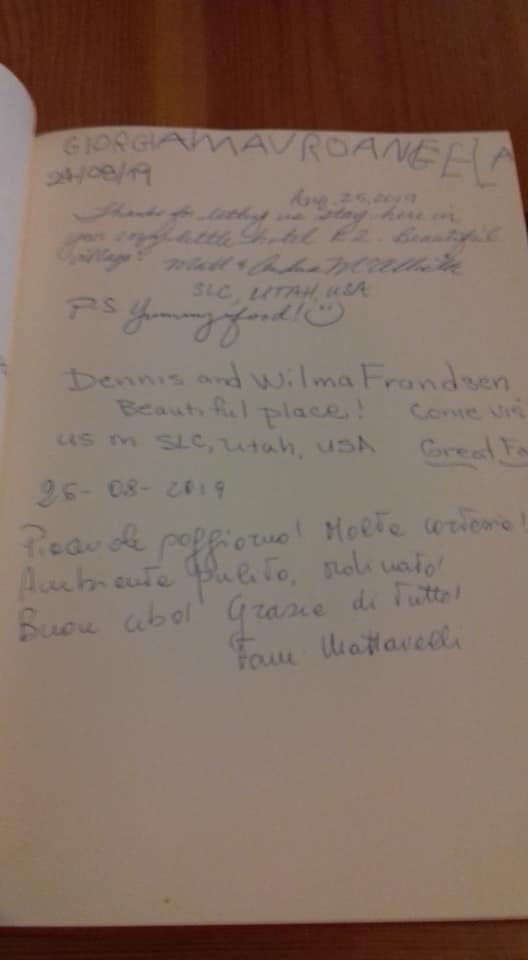 GIORGIAMAUROANGELA
24/08/19
Aug. 25, 2019
Thanks for letting us stay here in
your cozy little hotel B2. Beautiful
village! Matt &
SLC, UTAH, USA
PS Yummy food! ☺
Dennis and Wilma Frandsen
Beautiful place! Come vis
us in SLC, Utah, USA Great Fo
26-08-2019
soggiorno! Molta cortesia!
Ambiente pulito, ordinato!
Buon cibo! Grazie di tutto!
Fam. Mattavelli